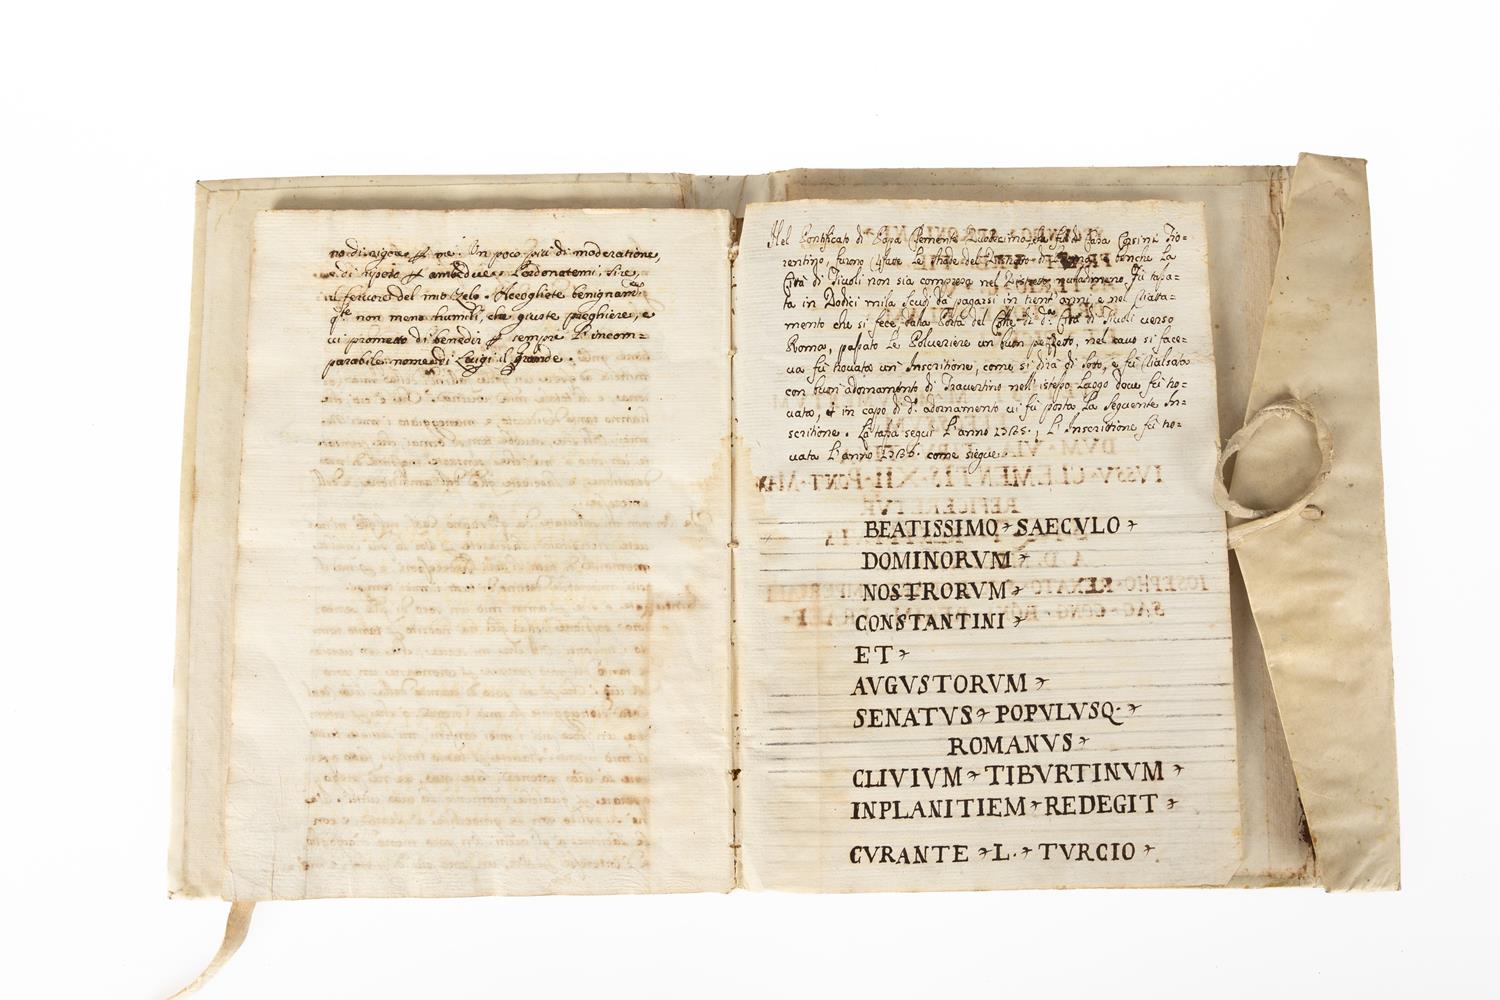 no di rigore per me. Un poco più di moderatione,
e di rispeto per ambedue. Perdonatemi, Sire,
il fervore del mio Zelo. Accogliete benignam.te
q.te non meno humili, che giuste preghiere, e
vi prometto di benedir per sempre l'incom=
parabile nome di Luigi il Grande.
Nel Pontificato di Papa Clemente Duodecimo, Casa Corsini Fio=
rentino, furono rifate le strade del Distreto di Roma, e benche la
Città di Tivoli non sia compresa nel Distreto, fu tassa=
ta in Dodici mila Scudi da pagarsi in trent'anni, e nel riatta=
mento che si fece dalla Porta del di d.a Città di Tivoli verso
Roma, passato le Polveriere un buon pezzeto, nel cavo si face=
va fu trovata un'Inscritione, come si dirà di Soto, e fu rialsata
con buon adornamento di Travertino nell'istesso Luogo dove fu tro=
vato, et in capo di d.o adornamento vi fu posta La Seguente In=
scritione. La tassa seguì l'anno 1735., l'Inscritione fu tro=
vata l'anno 1736. come siegue.
BEATISSIMO SAECVLO
DOMINORVM
NOSTRORVM
CONSTANTINI
ET
AVGVSTORVM
SENATVS POPVLVSQ.
ROMANVS
CLIVIVM TIBVRTINVM
INPLANITIEM REDEGIT
CVRANTE L. TVRCIO